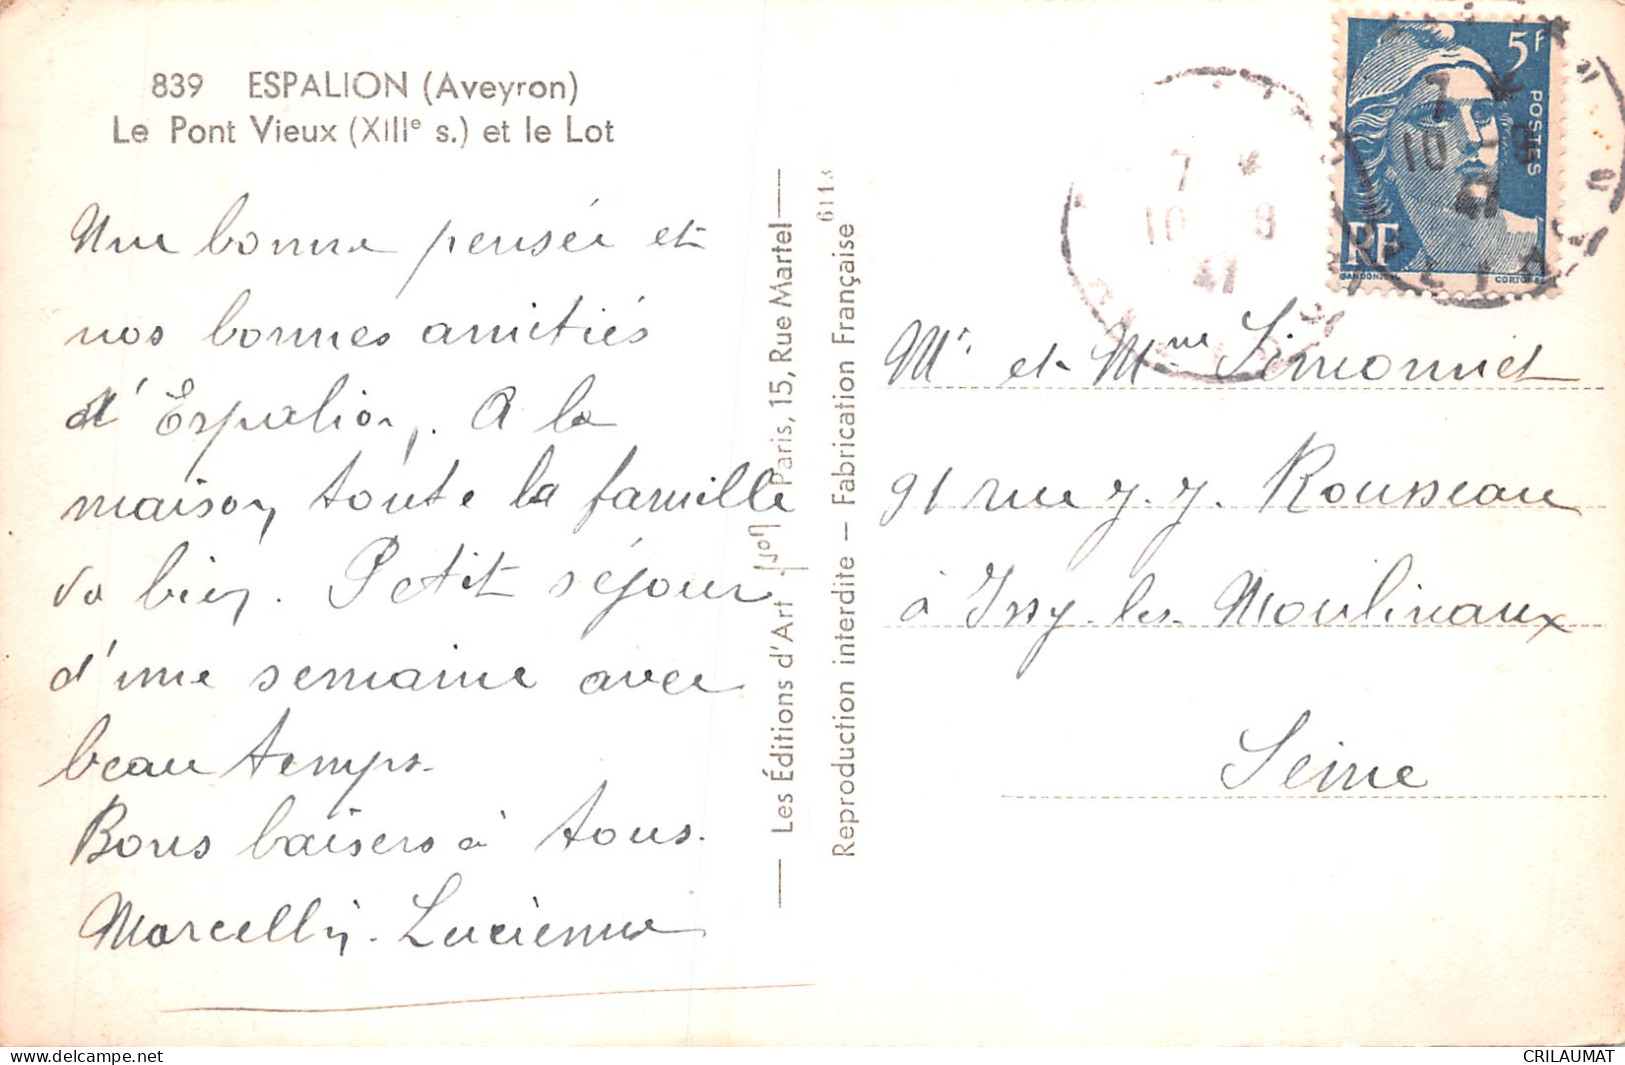 839 ESPALION (Aveyron)
Le Pont Vieux (XIIIe s.) et le Lot
Une bonne pensée et
nos bonnes amitiés
d'Espalion. A la
maison, toute la famille
va bien. Petit séjour
d'une semaine avec
beau temps.
Bons baisers à tous.
Marcellin - Lucienne
Les Éditions d'Art Yvon Paris, 15, Rue Martel
Reproduction interdite — Fabrication Française
6113
5f
POSTES
RF
GANDON
7 *
10 - 8
47
7 *
10 8
47
Mr et Mme Simonnet
91 rue J. J. Rousseau
à Issy-les-Moulineaux
Seine
delcampe.net
CRILAUMAT